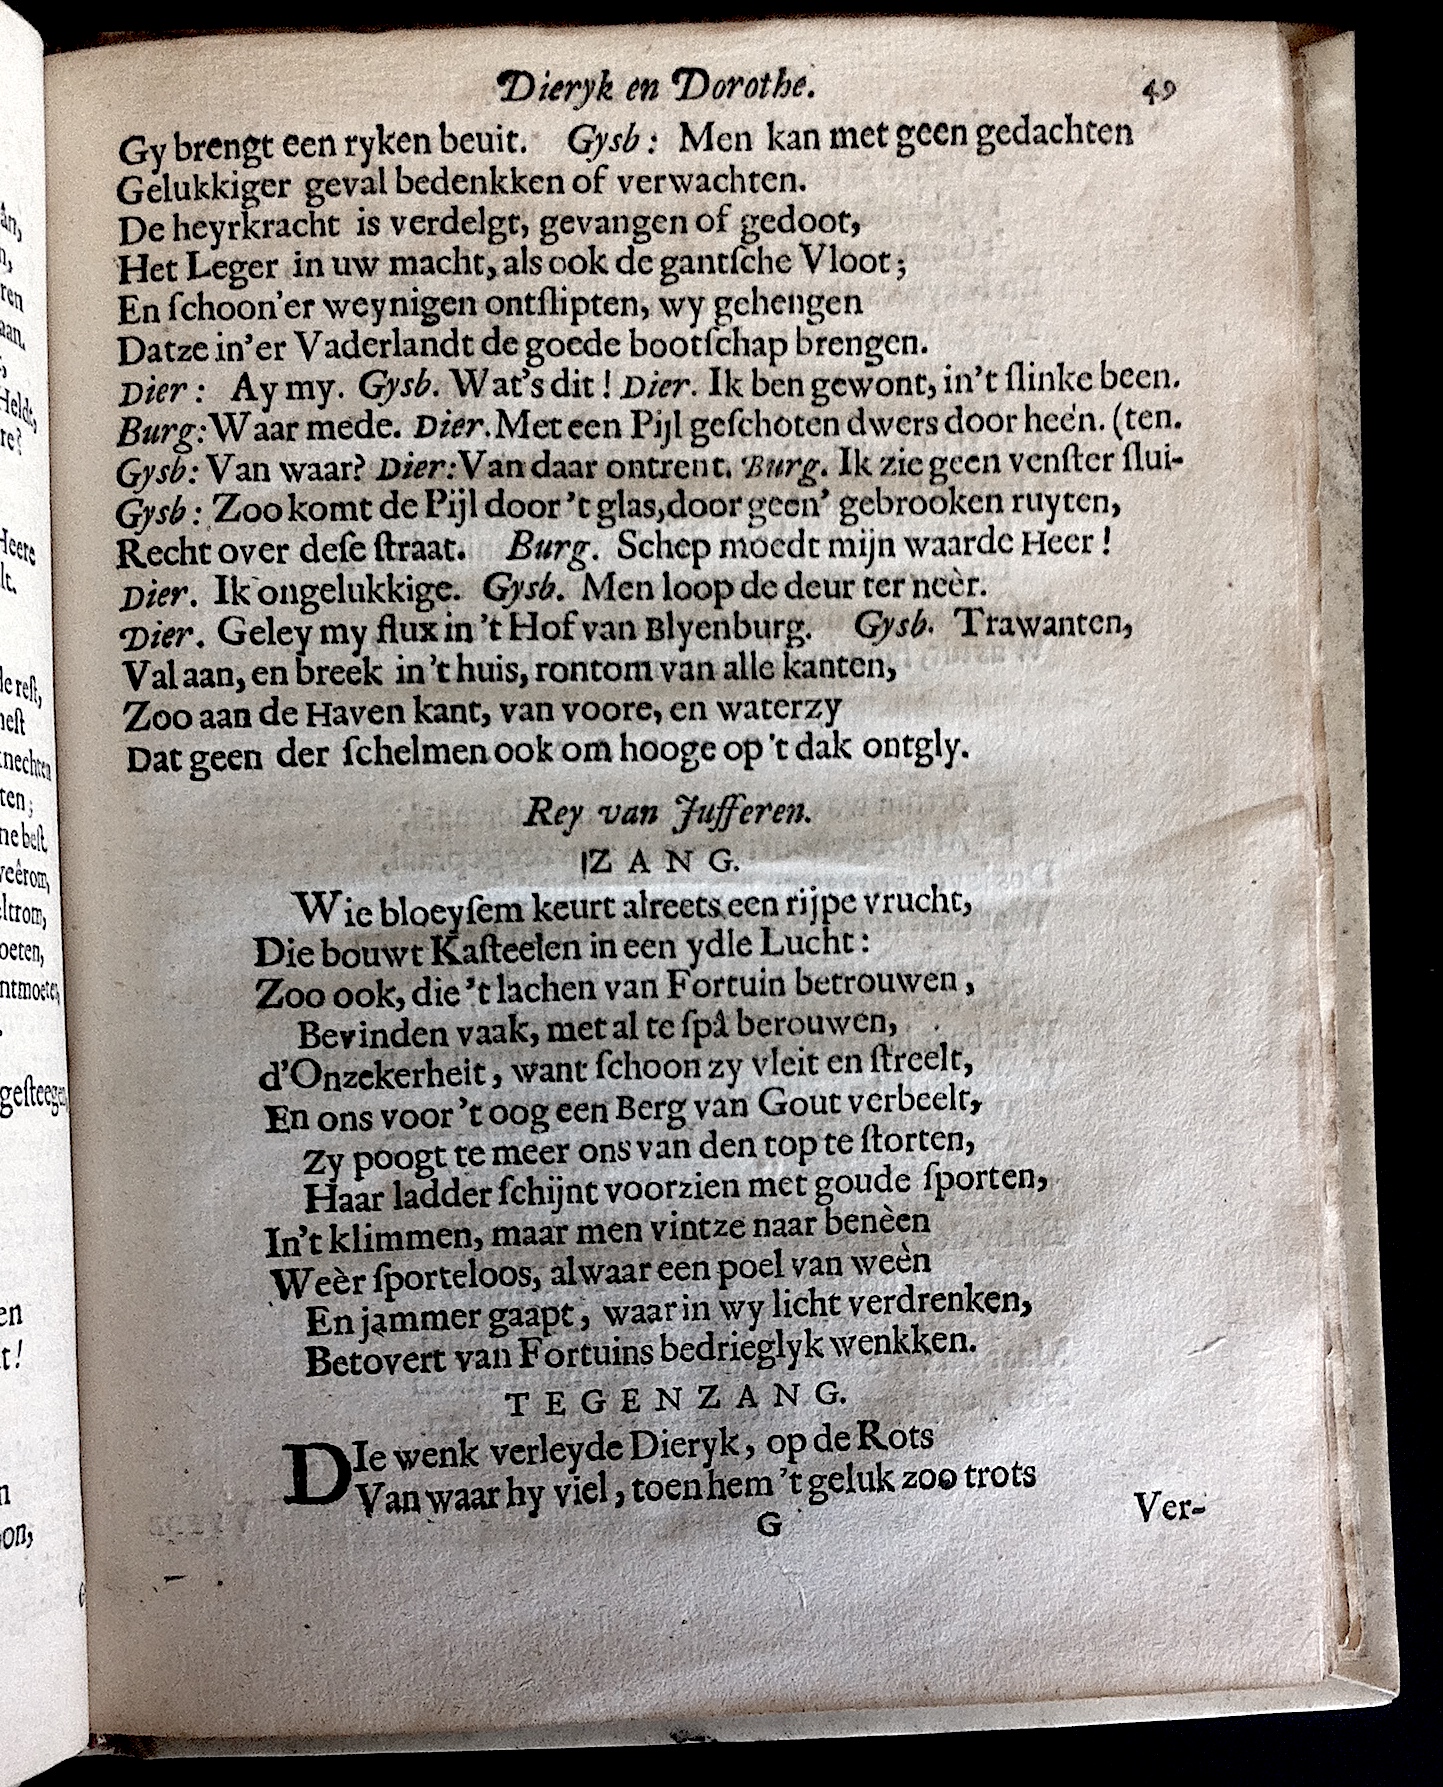 Dieryk en Dorothe. 49
Gy brengt een ryken beuit. Gysb: Men kan met geen gedachten
Gelukkiger geval bedenkken of verwachten.
De heyrkracht is verdelgt, gevangen of gedoot,
Het Leger in uw macht, als ook de gantſche Vloot;
En ſchoon'er weynigen ontſlipten, wy gehengen
Datze in'er Vaderlandt de goede bootſchap brengen.
Dier: Ay my. Gysb. Wat's dit! Dier. Ik ben gewont, in't ſlinke been.
Burg: Waar mede. Dier. Met een Pijl geſchoten dwers door heén. (ten.
Gysb: Van waar? Dier: Van daar ontrent. Burg. Ik zie geen venſter ſlui-
Gysb: Zoo komt de Pijl door 't glas, door geen' gebrooken ruyten,
Recht over deſe ſtraat. Burg. Schep moedt mijn waarde Heer!
Dier. Ik ongelukkige. Gysb. Men loop de deur ter neèr.
Dier. Geley my flux in 't Hof van Blyenburg. Gysb. Trawanten,
Val aan, en breek in 't huis, rontom van alle kanten,
Zoo aan de Haven kant, van voore, en waterzy
Dat geen der ſchelmen ook om hooge op 't dak ontgly.
Rey van Jufferen.
ZANG.
Wie bloeyſem keurt alreets een rijpe vrucht,
Die bouwt Kaſteelen in een ydle Lucht:
Zoo ook, die 't lachen van Fortuin betrouwen,
Bevinden vaak, met al te ſpâ berouwen,
d'Onzekerheit, want ſchoon zy vleit en ſtreelt,
En ons voor 't oog een Berg van Gout verbeelt,
Zy poogt te meer ons van den top te ſtorten,
Haar ladder ſchijnt voorzien met goude ſporten,
In't klimmen, maar men vintze naar benèen
Weèr ſporteloos, alwaar een poel van weèn
En jammer gaapt, waar in wy licht verdrenken,
Betovert van Fortuins bedrieglyk wenkken.
TEGENZANG.
DIe wenk verleyde Dieryk, op de Rots
Van waar hy viel, toen hem 't geluk zoo trots
G Ver-